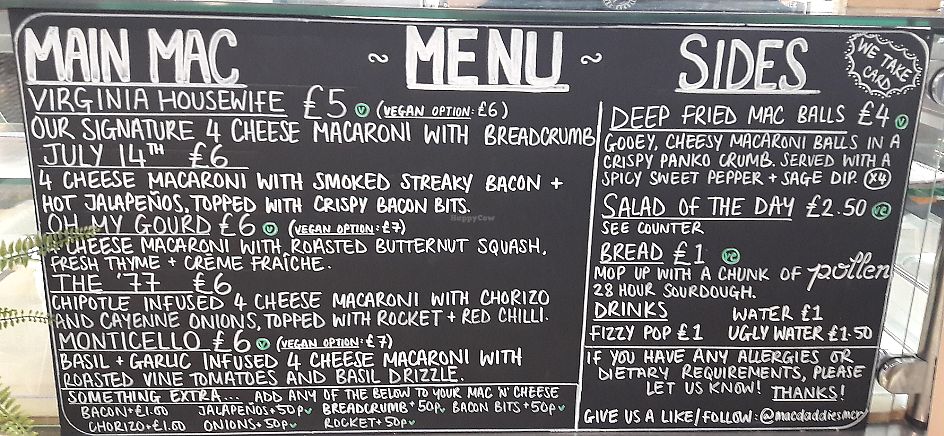 MAIN MAC ~ MENU ~
VIRGINIA HOUSEWIFE £5 V (VEGAN OPTION: £6)
OUR SIGNATURE 4 CHEESE MACARONI WITH BREADCRUMB
JULY 14TH £6
4 CHEESE MACARONI WITH SMOKED STREAKY BACON +
HOT JALAPEÑOS, TOPPED WITH CRISPY BACON BITS.
OH MY GOURD £6 V (VEGAN OPTION: £7)
4 CHEESE MACARONI WITH ROASTED BUTTERNUT SQUASH,
FRESH THYME + CRÈME FRAÎCHE.
THE '77 £6
CHIPOTLE INFUSED 4 CHEESE MACARONI WITH CHORIZO
AND CAYENNE ONIONS, TOPPED WITH ROCKET + RED CHILLI.
MONTICELLO £6 V (VEGAN OPTION: £7)
BASIL + GARLIC INFUSED 4 CHEESE MACARONI WITH
ROASTED VINE TOMATOES AND BASIL DRIZZLE.
SOMETHING EXTRA... ADD ANY OF THE BELOW TO YOUR MAC 'N' CHEESE
BACON +£1.00 JALAPEÑOS +50P BREADCRUMB +50P BACON BITS +50P
CHORIZO +£1.00 ONIONS +50P ROCKET +50P
SIDES
WE TAKE
CARD
DEEP FRIED MAC BALLS £4 V
GOOEY, CHEESY MACARONI BALLS IN A
CRISPY PANKO CRUMB. SERVED WITH A
SPICY SWEET PEPPER + SAGE DIP. X4
SALAD OF THE DAY £2.50 VE
SEE COUNTER
BREAD £1 VE
MOP UP WITH A CHUNK OF pollen
28 HOUR SOURDOUGH.
DRINKS WATER £1
FIZZY POP £1 UGLY WATER £1.50
IF YOU HAVE ANY ALLERGIES OR
DIETARY REQUIREMENTS, PLEASE
LET US KNOW! THANKS!
GIVE US A LIKE/FOLLOW: @macdaddiesmcr
HappyCow